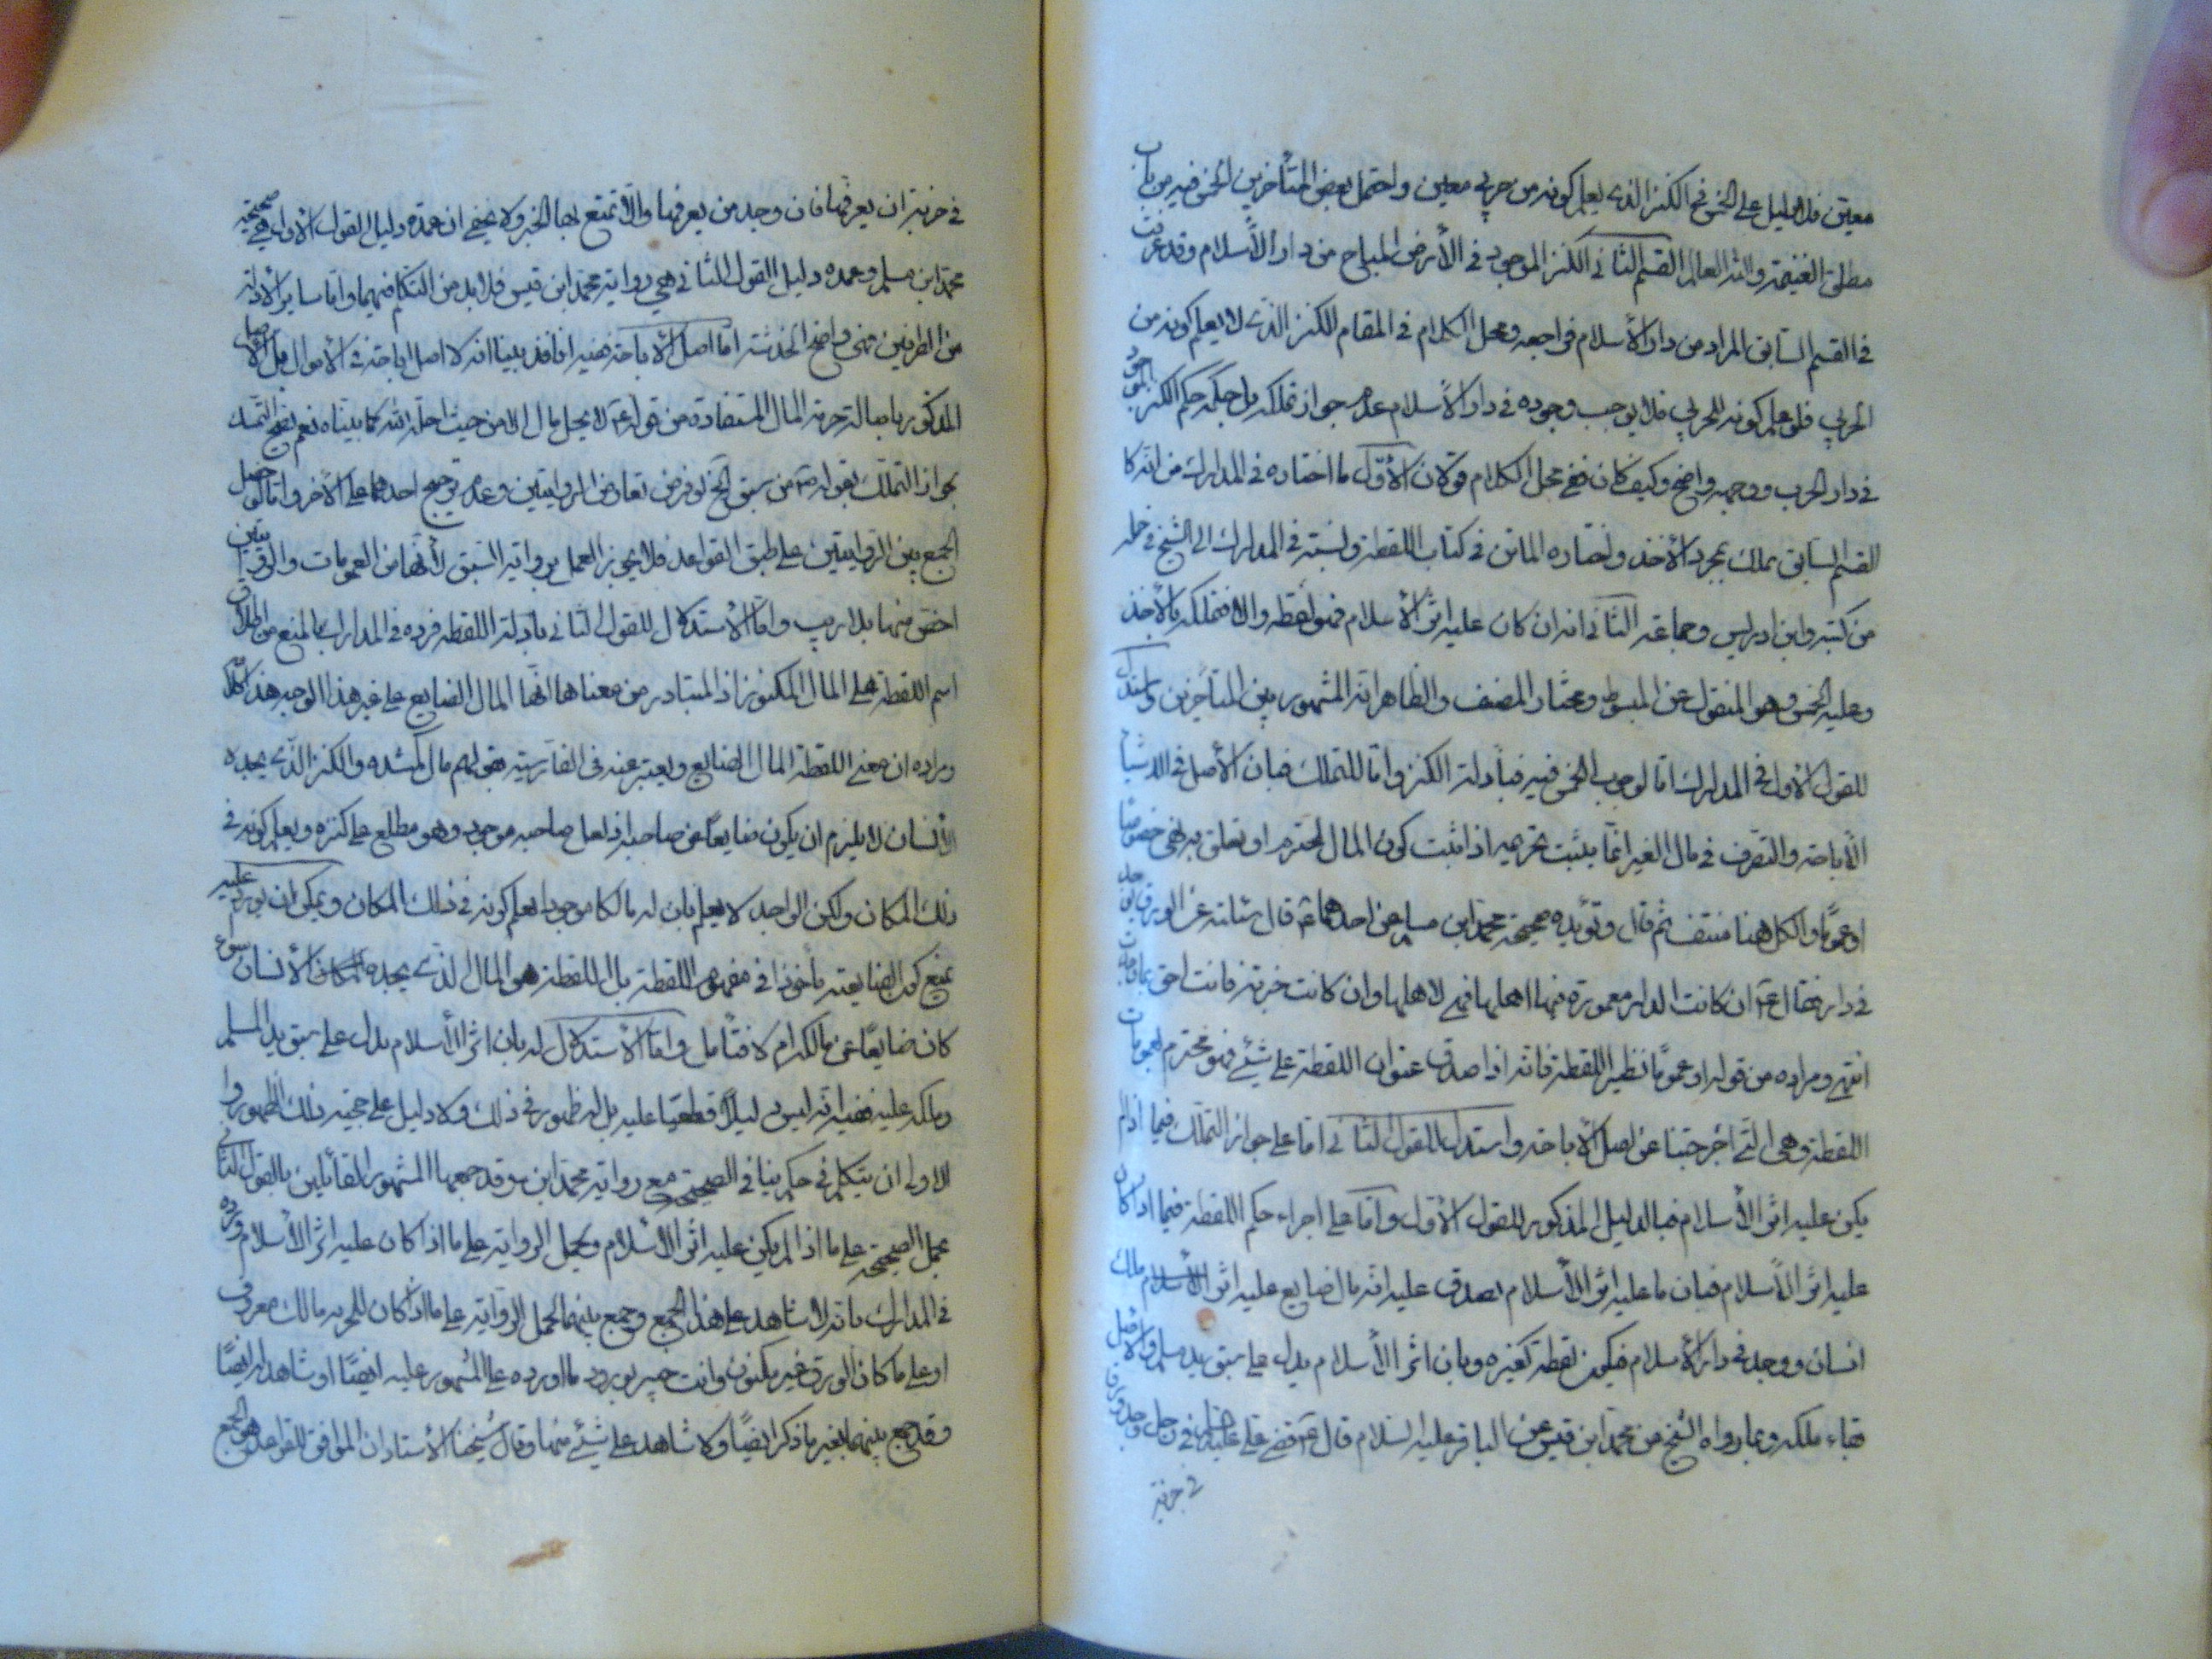 معين فلا دليل على الخمس في الكنز الذي يعلم كونه من حربي معين واحتمل بعض المتأخرين الخمس فيه من باب
مطلق الغنيمة والله العالم القسم الثاني الكنز الموجود في الأرض المباح من دار الأسلام وقد عرفت
في القسم السابق المراد من دار الأسلام فراجعه ومحل الكلام في المقام للكنز الذي لا يعلم كونه من
الحربي فلو علم كونه للحربي فلا يوجب وجوده في دار الأسلام عدم جواز تملكه بل حكمه حكم الكنز الموجود
في دار الحرب ووجهه واضح وكيف كان ففي محل الكلام قولان الأول ما اختاره في المدارك من انه كا
القسم السابق يملك بمجرد الأخذ واختاره الماتن في كتاب اللقطة ونسبته في المدارك الى الشيخ في جملة
من كتبه وابن ادريس وجماعة الثاني انه ان كان عليه اثر الأسلام فهو لقطة والا فتملكه بالأخذ
وعليه الخمس وهو المنقول عن المبسوط ومختار المصنف والظاهر انه المشهور بين المتأخرين واستدل
للقول الأول في المدارك اما لوجوب الخمس فيه فبأدلة الكنز واما للتملك فبان الأصل في الاشياء
الأباحة والتصرف في مال الغير انما يثبت تحريمه اذا ثبت كون المال لمحترم او تعلق به نهي خصوصا
او عموما والكل هنا منتف ثم قال ويؤيده صحيحة محمد ابن مسلم عن احدهما ع قال سئلته عن الورق يوجد
في دار فقال ع ان كانت الدار معمورة فيها اهلها فهي لاهلها وان كانت خربة فانت احق بما وجدت
انتهى ومراده من قوله او عموما نظير اللقطة فانه اذا صدق عنوان اللقطة على شيئ فهو محترم لعمومات
اللقطة وهي التي اخرجتنا عن اصل الأباحة واستدل للقول الثاني اما على جواز التملك فيما اذا لم
يكن عليه اثر الأسلام فبالدليل المذكور للقول الأول واما على اجراء حكم اللقطة فيما اذا كان
عليه اثر الأسلام فبان ما عليه اثر الأسلام يصدق عليه انه مال ضايع عليه اثر ملك
انسان ووجد في دار الأسلام فيكون لقطة كغيره وبان اثر الأسلام يدل على سبق يد مسلم والأصل
بقاء ملكه وبما رواه الشيخ عن محمد ابن قيس عن الباقر عليه السلام قال قضى علي عليه السلام في رجل وجد ورقا
في خربة
في خربة ان يعرفها فان وجد من يعرفها والا تمتع بها الخبر ولا يخفى ان عمدة دليل القول الأول هي صحيحة
محمد ابن مسلم وعمدة دليل القول الثاني هي رواية محمد ابن قيس فلا بد من التكلم فيهما واما ساير الأدلة
من الطرفين فهي واضح الخدشة اما اصل الأباحة ففيه انا قد بينا انه لا اصل اباحة في الأموال بل الأصل
المذكور باصالة حرمة المال المستفادة من قوله ع لا يحل مال الا من حيث احله الله كما بيناه نعم يصح التمسك
بجواز التملك بقوله ص من سبق الخ لو فرض تعارض الروايتين وعدم ترجيح احدهما على الأخر واما لو حصل
الجمع بين الروايتين على طبق القواعد فلا يجوز العمل برواية السبق لأنها من العمومات والروايتين
اخص منها بلا ريب واما الأستدلال للقول الثاني بأدلة اللقطة فرده في المدارك بالمنع من اطلاق
اسم اللقطة على المال المكنوز اذ المتبادر من معناها انها المال الضايع على غير هذا الوجه هذا كلامه
ومراده ان معنى اللقطة المال الضايع ويعبر عنه في الفارسية بقولهم مال گمشده والكنز الذي يجده
الأنسان لا يلزم ان يكون ضايعا عن صاحبه اذ لعل صاحبه موجود وهو مطلع على كنزه ويعلم كونه في
ذلك المكان ولكن الواجد لا يعلم بان له مالكا موجودا يعلم كونه في ذلك المكان ويمكن ان يورد عليه
بمنع كون الضايعية مأخوذا في مفهوم اللقطة بل اللقطة هو المال الذي يجده الأنسان سواء
كان ضايعا عن مالكه ام لا فتأمل واما الأستدلال له بان اثر الأسلام يدل على سبق يد المسلم
وملكه عليه ففيه انه ليس دليلا قطعيا عليه بل له ظهور في ذلك ولا دليل على حجية ذلك الظهور وا
الاولى ان يتكلم في حكم بينا في الصحيحة مع رواية محمد ابن وقد جمعهما المشهور القائلين بالقول الثاني
بحمل الصحيحة على ما اذا لم يكن عليه اثر الأسلام وبحمل الرواية على ما اذا كان عليه اثر الأسلام ورده
في المدارك بانه لا شاهد على هذا الجمع وجمع بينهما بحمل الرواية على ما اذا كان للخربة مالك معروف
او على ما كان الورق غير مكنوز وانت خبير بورود ما اورده على المشهور عليه ايضا اذ لا شاهد له ايضا
وقد جمع بينهما بغير ما ذكر ايضا ولا شاهد على شيئ منها وقال شيخنا الأستاد ان الموافق للقواعد هو الجمع